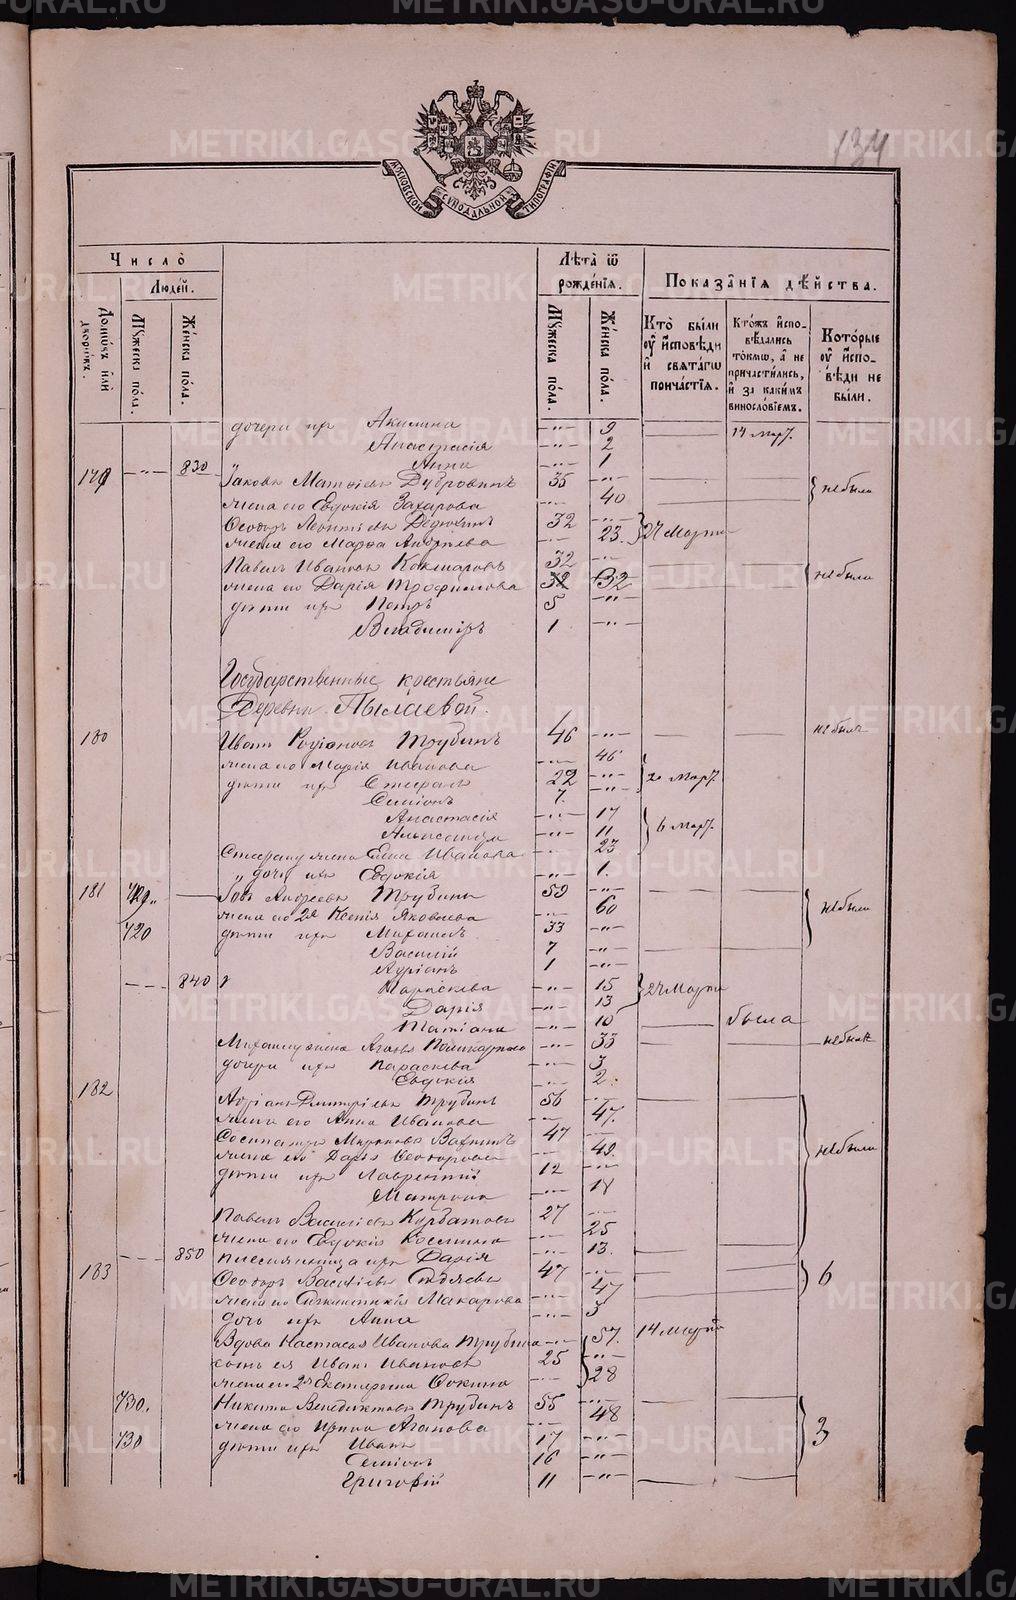 134
МОСКОВСКОЙ СѴНОДАЛЬНОЙ ТИПОГРАФІИ
Число̀
Людéй.
Домѡ́въ и҆лѝ дворѡ́въ.
Мꙋ́жеска по́ла.
Же́нска по́ла.
Лѣ́та ѿ рожде́нїѧ.
Мꙋ́жеска по́ла.
Же́нска по́ла.
Показа̑нїѧ дѣ́йства.
Кто̀ бы́ли ᲂу҆ и҆сповѣ́ди и҆ свѧта́гѡ прича́стїѧ.
Кто́жъ и҆спо-вѣ́дались то́кмѡ, а҆ не причасти́лись, и҆ за каки́мъ виносло́вїемъ.
Кото́рые ᲂу҆ и҆спо-вѣ́ди не бы́ли.
дочери ихъ Акилина -„- 9 14 март.
Анастасія -„- 2
830 Анна -„- 1
179 Іаковъ Матѳіевъ Дубровинъ 35 -„- не были
жена его Евдокія Захарова -„- 40
Ѳеодоръ Леонтіевъ 32 -„- 24 Марта
жена его Марѳа Андреева -„- 23.
Павелъ Ивановъ 32 -„- не были
жена его Дарія Трофимова 32
дѣти ихъ Петръ 5 -„-
Владиміръ 1 -„-
Государственные крестьяне
Деревни Пылаевой.
180 Иванъ Родіоновъ Трубинъ 46 -„- не былъ
жена его Марія Иванова -„- 46
дѣти ихъ Стефанъ 22 -„- 20 март.
Симіонъ 7. -„-
Анастасія -„- 17 6 март.
Александра -„- 11
Стефану жена Елена Иванова -„- 23
„дочь ихъ Евдокія -„- 1.
181 Андреевъ Трубинъ 59 -„- не были
жена его 2я Ксенія Яковлева -„- 60
720 дѣти ихъ Михаилъ 33 -„-
Василій 7 -„-
Адріанъ 1 -„-
840 Параскева -„- 15 24 Марта
Дарія -„- 13
Татіана -„- 10 была
Михаилу жена Поликарпова -„- 33 не была
дочери ихъ Параскева -„- 3
Евдокія -„- 2
182 Адріанъ Димитріевъ Трубинъ 56 -„- не были
жена его Анна Иванова -„- 47.
Сосипатръ Мироновъ 47 -„-
жена его Дарія Ѳеодорова -„- 49.
дѣти ихъ Лаврентій 12 -„-
Матрона -„- 18
Павелъ Василіевъ Курбатовъ 27 -„-
жена его Евдокія -„- 25
850 племянница ихъ Дарія -„- 13.
183 Ѳеодоръ Василіевъ 47 -„- 6
жена его Макарова -„- 47
дочь ихъ Анна -„- 3
Вдова Настасья Иванова Трубина -„- 57. 14 марта
сынъ ея Иванъ Ивановъ 25 -„-
жена его 2я Екатерина Фокина -„- 28
730. Никита Венедиктовъ Трубинъ 55 -„- 3
жена его Ирина Агапова -„- 48
730 дѣти ихъ Иванъ 17 -„-
Семіонъ 16 -„-
Григорій 11 -„-
METRIKI.GASO-URAL.RU